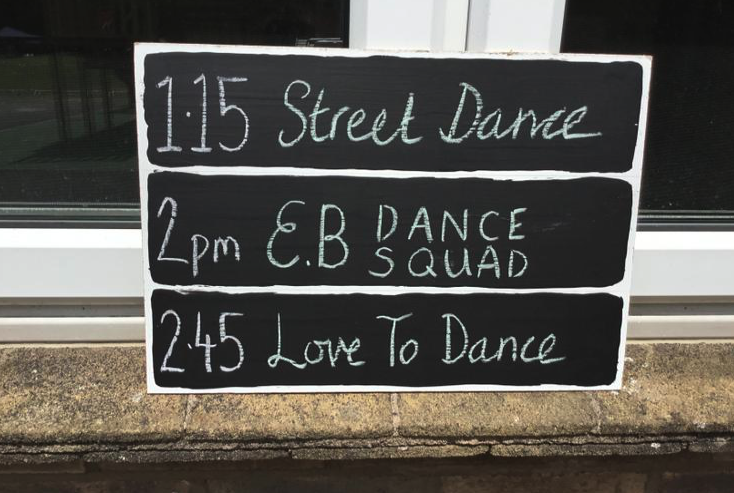 1.15 Street Dance
2pm E.B DANCE SQUAD
2.45 Love To Dance